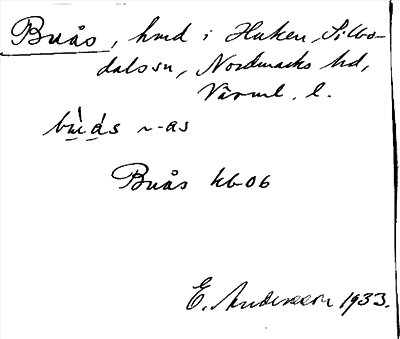 Buås, hmd i Haken, Silbo-
dals sn, Nordmarks hd,
Värml. l.
bu̇ås ~-as
Buås kb06
E. Andersson 1933.